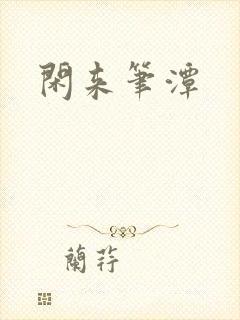 閑来筆潭
蘭荇